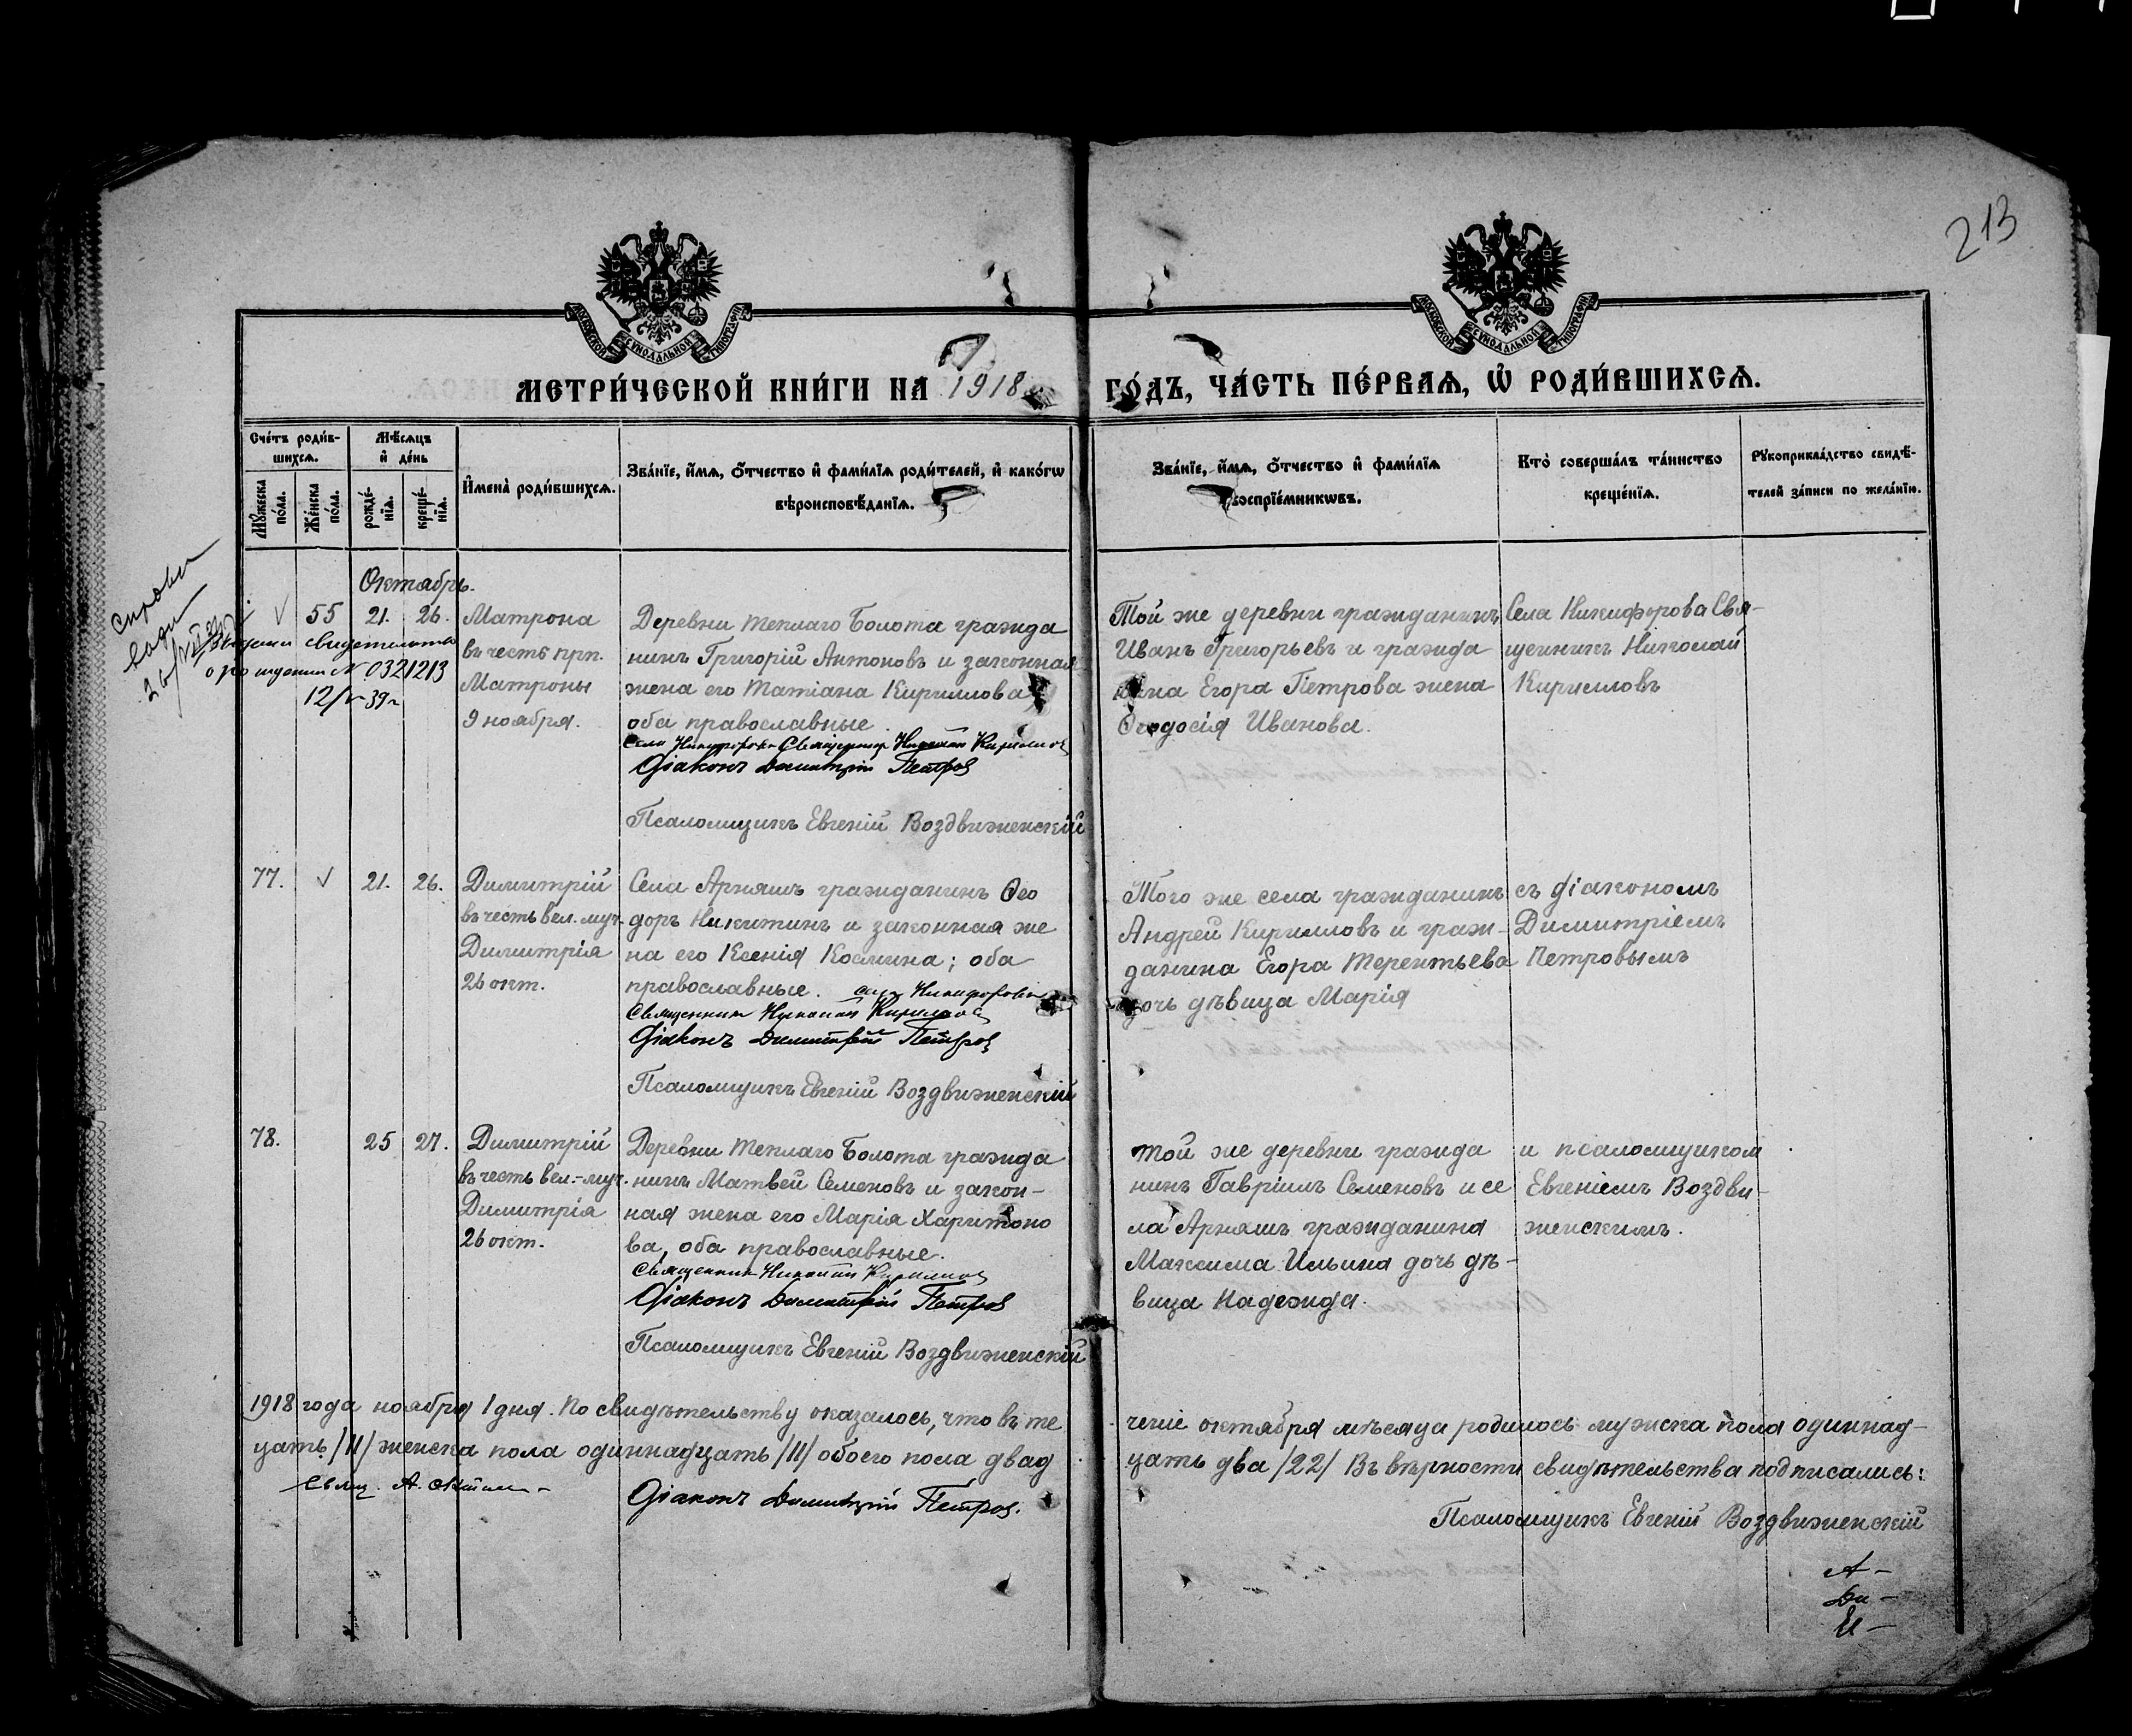 213
МОСКОВСКОЙ СѴНОДАЛЬНОЙ ТИПОГРАФІИ
МОСКОВСКОЙ СѴНОДАЛЬНОЙ ТИПОГРАФІИ
МЕТРИ́ЧЕСКОЙ КНИ́ГИ НА 1918 ГО́ДЪ, ЧА́СТЬ ПЕ́РВАѦ, Ѡ҆ РОДИ́ВШИХСѦ.
Сче́тъ роди́в-
шихсѧ.
Мꙋ́жеска по́ла.
Же́нска по́ла.
Мѣ́сѧцъ
и҆ де́нь
рожде́-
нїѧ.
креще́-
нїѧ.
И҆мена̀ роди́вшихсѧ.
Зва́нїе, и҆́мѧ, ѻ҆́тчество и҆ фами́лїѧ роди́телей, и҆ како́гѡ
вѣроисповѣ́данїѧ.
Зва́нїе, и҆́мѧ, ѻ҆́тчество и҆ фами́лїѧ
воспрїе́мникѡвъ.
Кто̀ соверша́лъ та́инство
креще́нїѧ.
Рꙋкоприкла́дство свидѣ́-
телей за́писи по жела́нїю.
Октябрь.
55 21. 26.
свидетельство
о рождении № 0321213
12/V-39г
Матрона
въ честь прп.
Матроны
9 ноября.
Деревни Теплаго Болота гражда
нинъ Григорій Антоновъ и законная
жена его Татіана Кириллова
оба православные.
Села Никифорова Священникъ Николай Кирилловъ
Діаконъ Димитрій Петровъ
Псаломщикъ Евгеній Воздвиженскій
Той же деревни гражданинъ
Иванъ Григорьевъ и гражда
нина Егора Петрова жена
Ѳеодосія Иванова.
Села Никифорова Свя-
щенникъ Николай
Кирилловъ
77. 21. 26.
Димитрій
въ честь вел. муч.
Димитрія
26 окт.
Села Арняшъ гражданинъ Ѳео
доръ Никитинъ и законная же
на его Ксенія Космина; оба
православные. Села Никифорова
Священникъ Николай Кирилловъ
Діаконъ Димитрій Петровъ
Псаломщикъ Евгеній Воздвиженскій
Того же села гражданинъ
Андрей Кирилловъ и граж-
данина Егора Терентьева
дочь дѣвица Марія
съ діакономъ
Димитріемъ
Петровымъ
78. 25 27.
Димитрій
въ честь вел.-муч.
Димитрія
26 окт.
Деревни Теплаго Болота гражда
нинъ Матвей Семеновъ и закон-
ная жена его Марія Харитоно
ва, оба православные.
Священникъ Николай Кирилловъ
Діаконъ Димитрій Петровъ
Псаломщикъ Евгеній Воздвиженскій
Той же деревни гражда
нинъ Гавріилъ Семеновъ и се
ла Арняшъ гражданина
Максима Ильина дочь дѣ-
вица Надежда.
и псаломщиком
Евгеніемъ Воздви-
женскимъ.
1918 года ноября 1 дня. По свидѣтельству оказалось, что въ те
чепіе октября мѣсяца родилось мужска пола одиннад-
цать /11/ женска пола одиннадцать /11/ обоего пола двад
цать два /22/ Въ вѣрности свидѣтельства подписались:
Свящ. А.
Діаконъ Димитрій Петровъ.
Псаломщикъ Евгеній Воздвиженскій